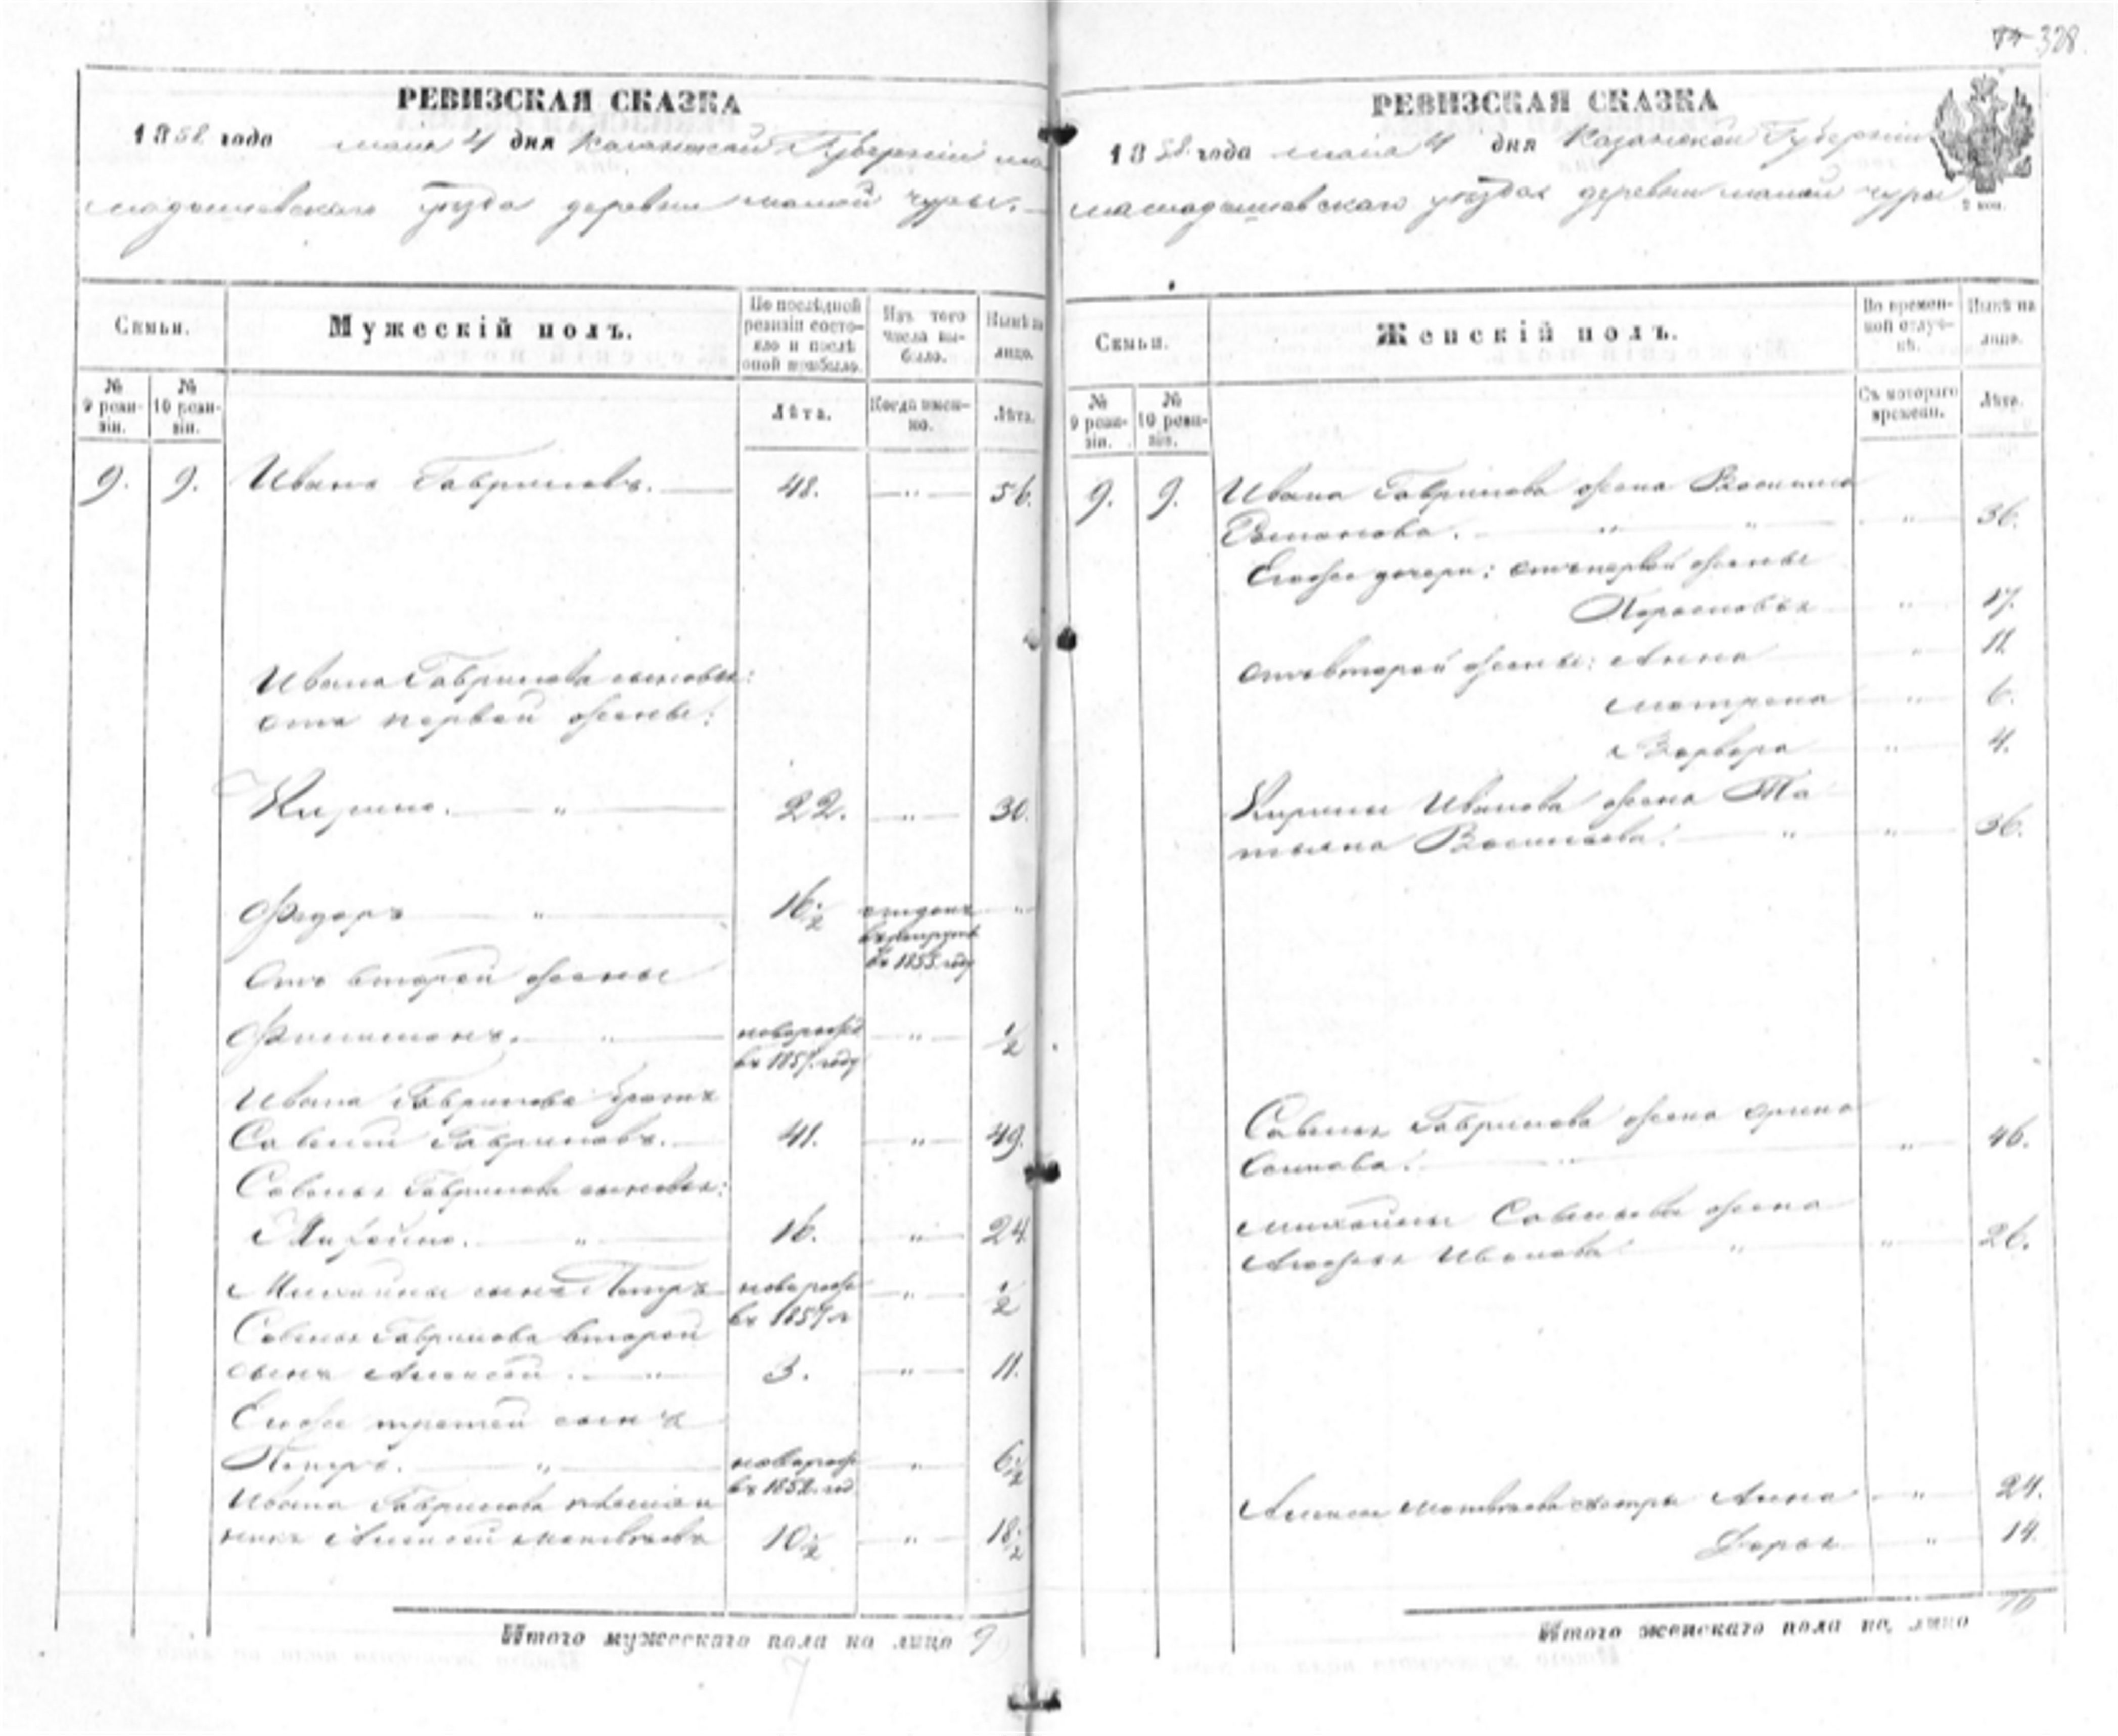 328
РЕВИЗСКАЯ СКАЗКА
1858 года мая 4 дня Казанской Губернии ма
мадышевскаго уѣзда деревни малой чуры.
Семьи.
Мужескій полъ.
По послѣдной ревизіи состояло и послѣ оной прибыло.
Изъ того числа выбыло.
Нынѣ на лицо.
№ 9 ревизіи.
№ 10 ревизіи.
Лѣта.
Когда именно.
Лѣта.
9. 9. Иванъ Гавриловъ. 48. 56.
Ивана Гаврилова сыновья:
отъ первой жены:
Кирило. 22. 30.
Федоръ 16 1/2 отданъ
въ рекруты
въ 1855 году
Отъ второй жены
Филимонъ. новорожд 1/2
въ 1857 году
Ивана Гаврилова братъ
Савелій Гавриловъ. 41. 49.
Савелья Гаврилова сыновья:
Михайло. 16. 24
Михайлы сынъ Петръ новорож 1/2
въ 1857 г
Савелья Гаврилова второй
сынъ Алексей. 3. 11.
Егоже третей сынъ
новорож 6 1/2
въ 1852 год
Ивана Гаврилова племян
никъ Алексей матвѣевъ 10 1/2 18 1/2
Итого мужескаго пола на лицо 9
7
РЕВИЗСКАЯ СКАЗКА
1858 года мая 4 дня Казанской Губерніи
мамадышевскаго уѣзда деревни малой чуры
2 коп.
Семьи.
Женскій полъ.
Во временной отлучкѣ.
Нынѣ на лицо.
№ 9 ревизіи.
№ 10 ревизіи.
Съ котораго времени.
Лѣта.
9. 9. Ивана Гаврилова жена Василиса
Романова. 36.
Егоже дочери: отъ первой жены
Парасковья 17.
отъ второй жены: Анна 11
матрена 6.
Варвара 4.
Кирилы Иванова жена Та
тьяна Васильева. 36.
Савелья Гаврилова жена арина
46.
михайлы Савельева жена
Иванова 26.
Алексея матвѣева сестры Анна 24.
Дарья 14.
Итого женскаго пола на лицо 10